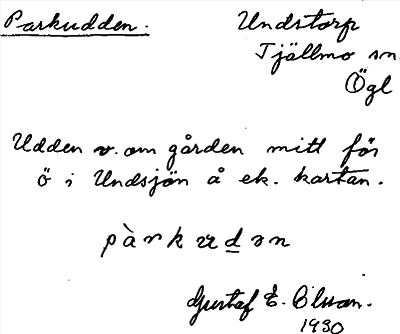 Parkudden.
Undstorp
Tjällmo sn.
Ögl
Udden v. om gården mitt för
ö i Undsjön å ek. kartan.
pàrkudən
Gustaf E. Olsson.
1930